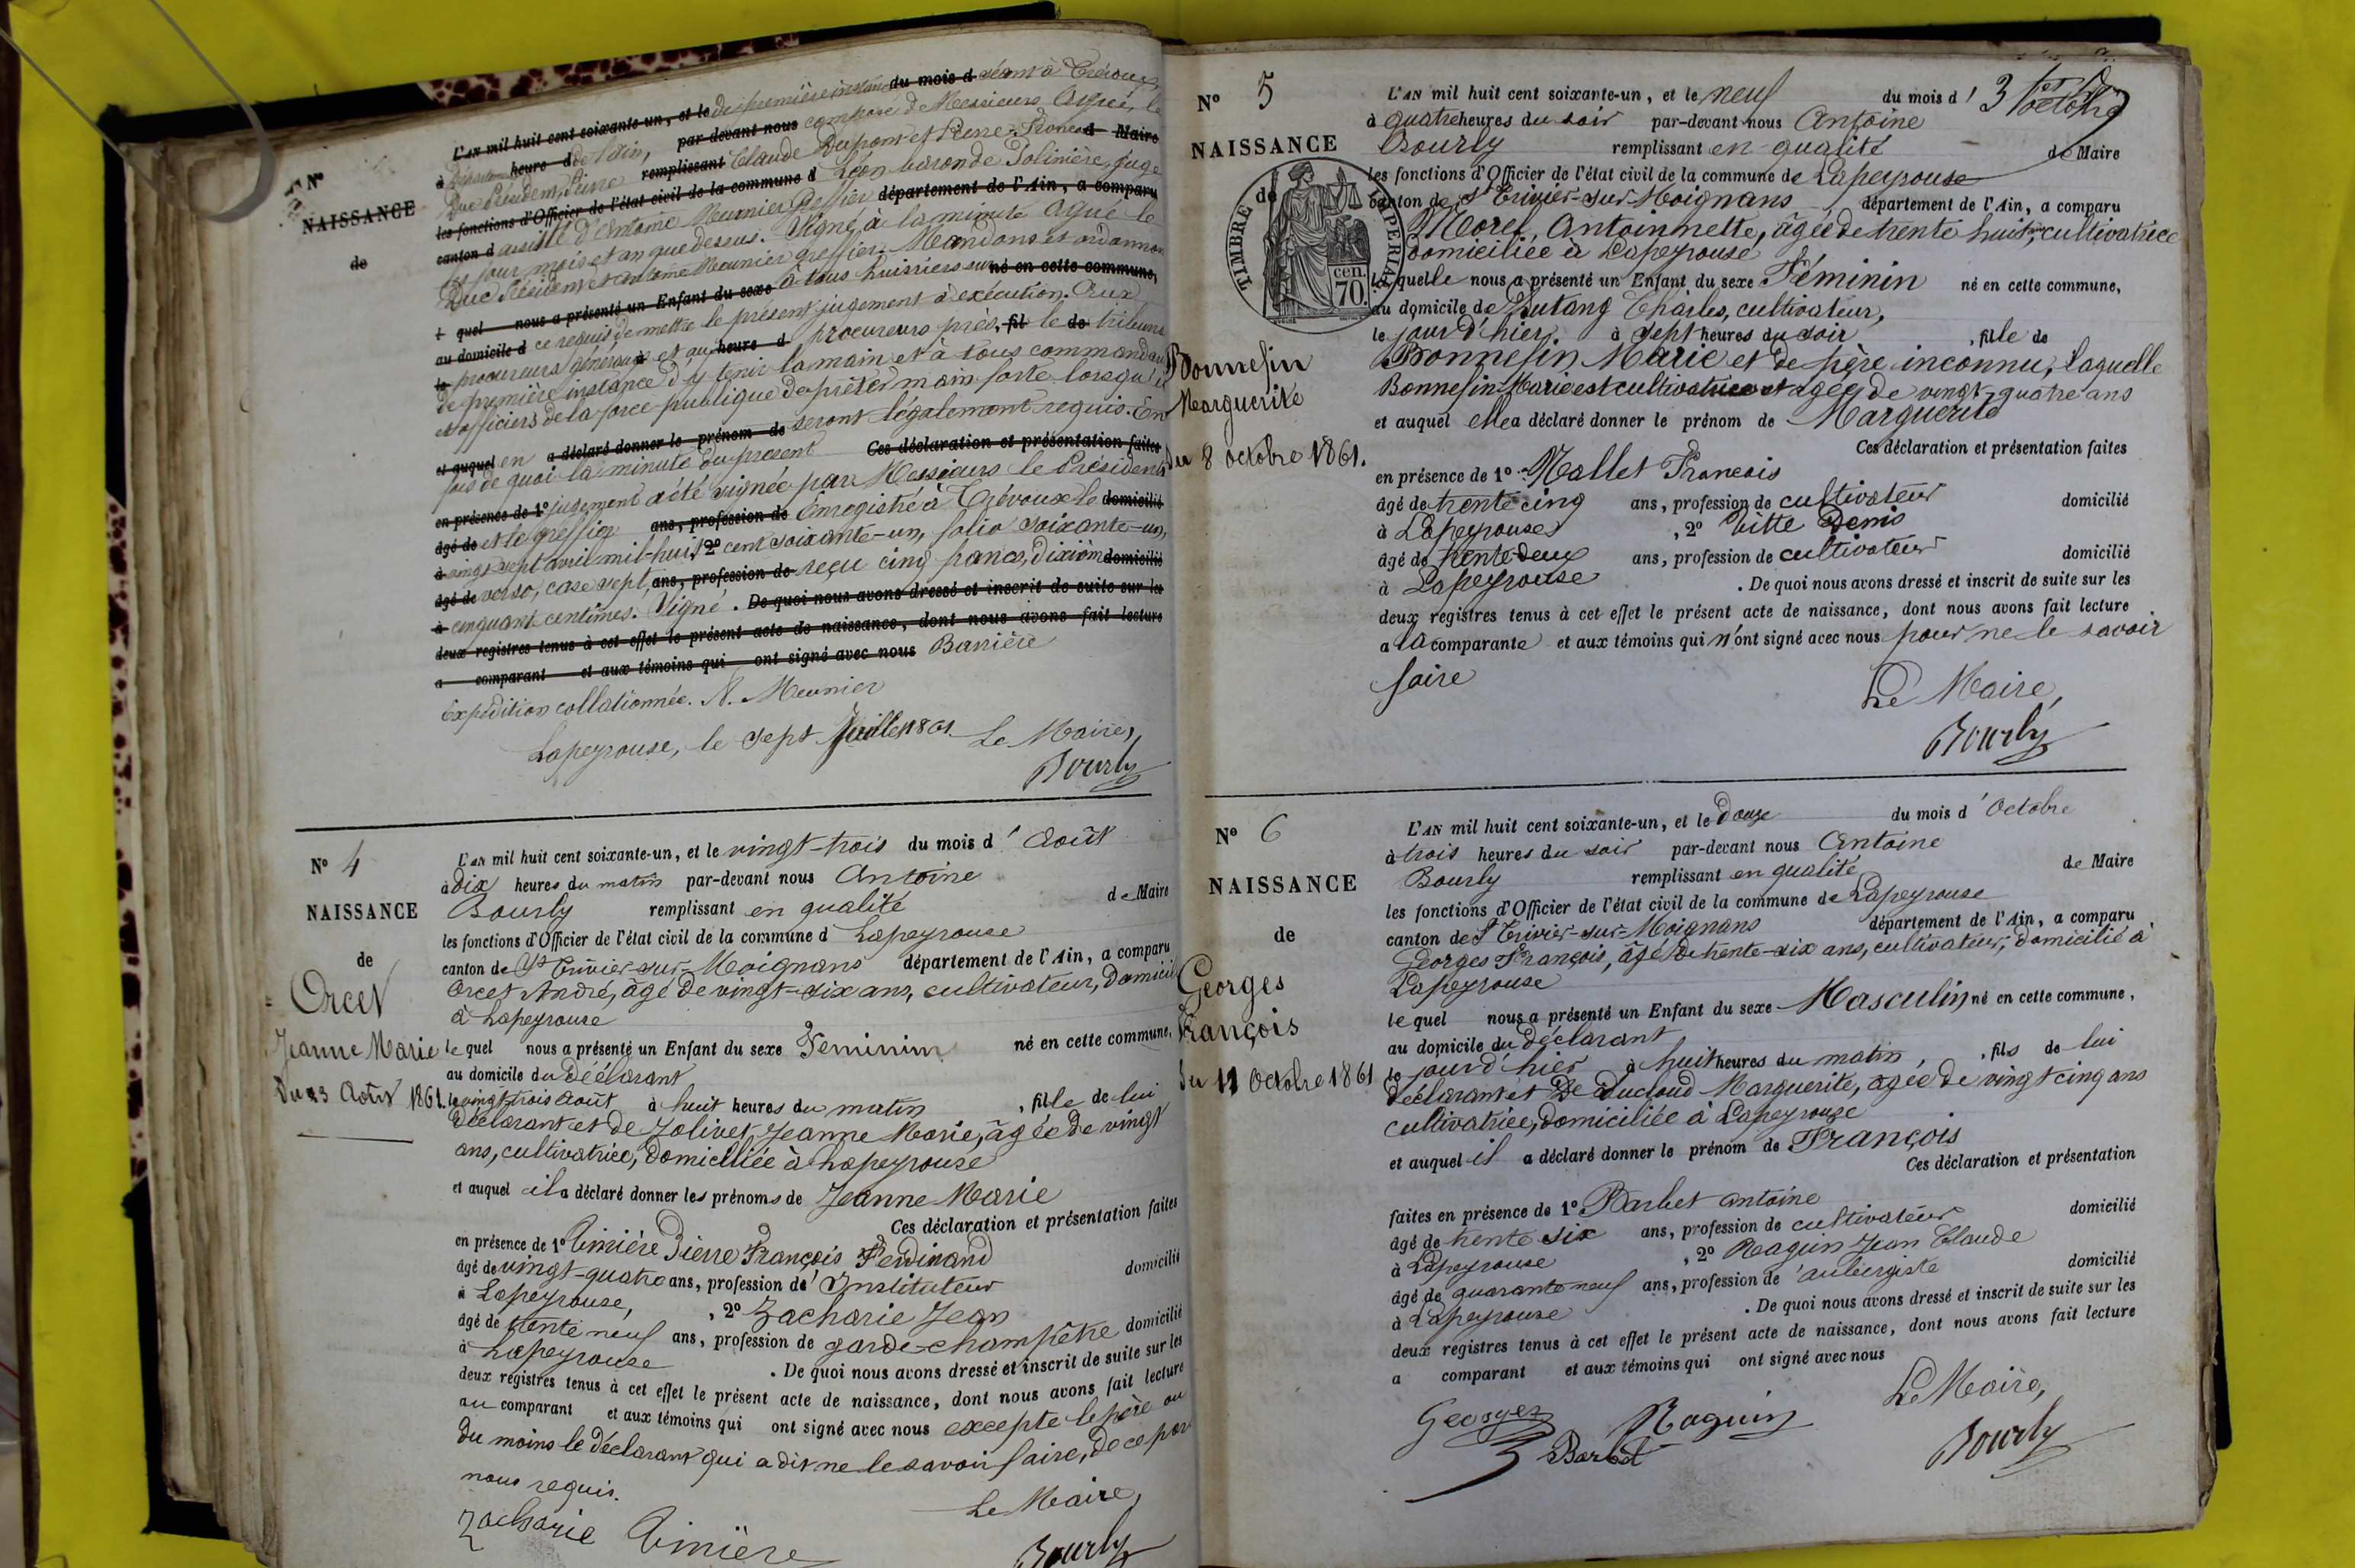 L'AN mil huit cent soixante-un, et le de première instance du mois d séant à Trévoux,
N° à heure d de l'ain, par-devant nous composé de Messieurs le
NAISSANCE Duc Président, Pierre remplissant Claude Dupont et Pierre Maire
les fonctions d'Officier de l'état civil de la commune d Léon baron de Polinière, juge
de canton d assisté d'Antoine Meunier Greffier département de l'Ain, a comparu
les jour, mois et an que dessus. Signé à la minute le
Duc Président et antoine Meunier greffier. Mandons et ordonnons
l quel nous a présenté un Enfant du sexe à tous huissiers sur né en cette commune,
au domicile d ce requis de mettre le présent jugement à exécution. Aux
le procureurs généraux et aux heure d procureurs près, fil le de tribunal
de première instance d'y tenir la main et à tous commandants
et officiers de la force publique de prêter main forte lorsqu'il
seront légalement requis. En
et auquel en a déclaré donner le prénom de Ces déclaration et présentation faites
fois de quoi la minute du présent
en présence de 1° jugement a été signée par Messieurs le Président
âgé de et le greffier ans, profession de Enregistré à Trévoux le domicilié
à vingt sept avril mil-huit 2° cent soixante-un, folio soixante-un,
âgé de verso, case sept, ans, profession de reçu cinq francs, dixième domicilié
à cinquant centimes. Signé . De quoi nous avons dressé et inscrit de suite sur les
deux registres tenus à cet effet le présent acte de naissance, dont nous avons fait lecture
a comparant et aux témoins qui ont signé avec nous Barrière
Expédition collationnée. N. Meunier
Lapeyrouse, le sept Juillet 1861 Le Maire,
Bourly
N° 4 L'AN mil huit cent soixante-un, et le vingt-trois du mois d'Août
à dix heures du matin par-devant nous Antoine
NAISSANCE Bourly remplissant en qualité de Maire
les fonctions d'Officier de l'état civil de la commune d Lapeyrouse
de canton de St Trivier-sur-Moignans département de l'Ain, a comparu
Orcet Orcet André, âgé de vingt-six ans, cultivateur, domicil
à Lapeyrouse
Jeanne Marie le quel nous a présenté un Enfant du sexe Féminin né en cette commune,
au domicile du Déclarant
Du 23 Août 1861. le vingt trois août à huit heures du matin , fille de lui
Déclarant et de Jolivet Jeanne Marie, âgée de vingt
ans, cultivatrice, domiciliée à Lapeyrouse
et auquel il a déclaré donner les prénoms de Jeanne Marie
Ces déclaration et présentation faites
en présence de 1° Timière Pierre François Ferdinand
âgé de vingt-quatre ans, profession d'Instituteur domicilié
à Lapeyrouse, , 2° Zacharie Jean
âgé de trente neuf ans, profession de garde-champêtre domicilié
à Lapeyrouse . De quoi nous avons dressé et inscrit de suite sur les
deux registres tenus à cet effet le présent acte de naissance, dont nous avons fait lecture
au comparant et aux témoins qui ont signé avec nous excepté le père ou
du moins le déclarant qui a dit ne le savoir faire, de ce par
nous requis.
Le Maire,
Zacharie Timière Bourly
N° 5 L'AN mil huit cent soixante-un, et le neuf du mois d'octobre
à quatre heures du soir par-devant nous Antoine
NAISSANCE Bourly remplissant en qualité de Maire
les fonctions d'Officier de l'état civil de la commune de Lapeyrouse
de canton de St Trivier-sur-Moignans département de l'Ain, a comparu
TIMBRE IMPERIAL
cen.
70.
Morel, Antoinnette, âgée de trente huit ans, cultivatrice
domiciliée à Lapeyrouse
laquelle nous a présenté un Enfant du sexe Féminin né en cette commune,
au domicile de Dutang Charles, cultivateur,
le jour d'hier, à sept heures du soir , fille de
Bonnefin Bonnefin Marie et de père inconnu, laquelle
Marguerite Bonnefin Marie est cultivatrice et agée de vingt-quatre ans
et auquel elle a déclaré donner le prénom de Marguerite
du 8 octobre 1861. Ces déclaration et présentation faites
en présence de 1° Mallet François
âgé de trente cinq ans, profession de cultivateur domicilié
à Lapeyrouse , 2° Vitte Denis
âgé de trente-deux ans, profession de cultivateur domicilié
à Lapeyrouse . De quoi nous avons dressé et inscrit de suite sur les
deux registres tenus à cet effet le présent acte de naissance, dont nous avons fait lecture
a la comparante et aux témoins qui n'ont signé avec nous pour ne le savoir
faire
Le Maire,
Bourly
N° 6 L'AN mil huit cent soixante-un, et le Douze du mois d'Octobre
à trois heures du soir par-devant nous Antoine
NAISSANCE Bourly remplissant en qualité de Maire
les fonctions d'Officier de l'état civil de la commune de Lapeyrouse
de canton de St Trivier-sur-Moignans département de l'Ain, a comparu
Georges Georges François, âgé de trente-six ans, cultivateur, domicilié à
Lapeyrouse
François le quel nous a présenté un Enfant du sexe Masculin né en cette commune,
au domicile du déclarant
Du 11 Octobre 1861 le jour d'hier à huit heures du matin, , fils de lui
déclarant et De Ducloud Marguerite, agée de vingt cinq ans
cultivatrice, domiciliée à Lapeyrouse
et auquel il a déclaré donner le prénom de François
Ces déclaration et présentation
faites en présence de 1° Barbet antoine
âgé de trente six ans, profession de cultivateur domicilié
à Lapeyrouse , 2° Raguin Jean Claude
âgé de quarante neuf ans, profession d'aubergiste domicilié
à Lapeyrouse . De quoi nous avons dressé et inscrit de suite sur les
deux registres tenus à cet effet le présent acte de naissance, dont nous avons fait lecture
a comparant et aux témoins qui ont signé avec nous
Le Maire,
Georges Raguin
Barbet Bourly